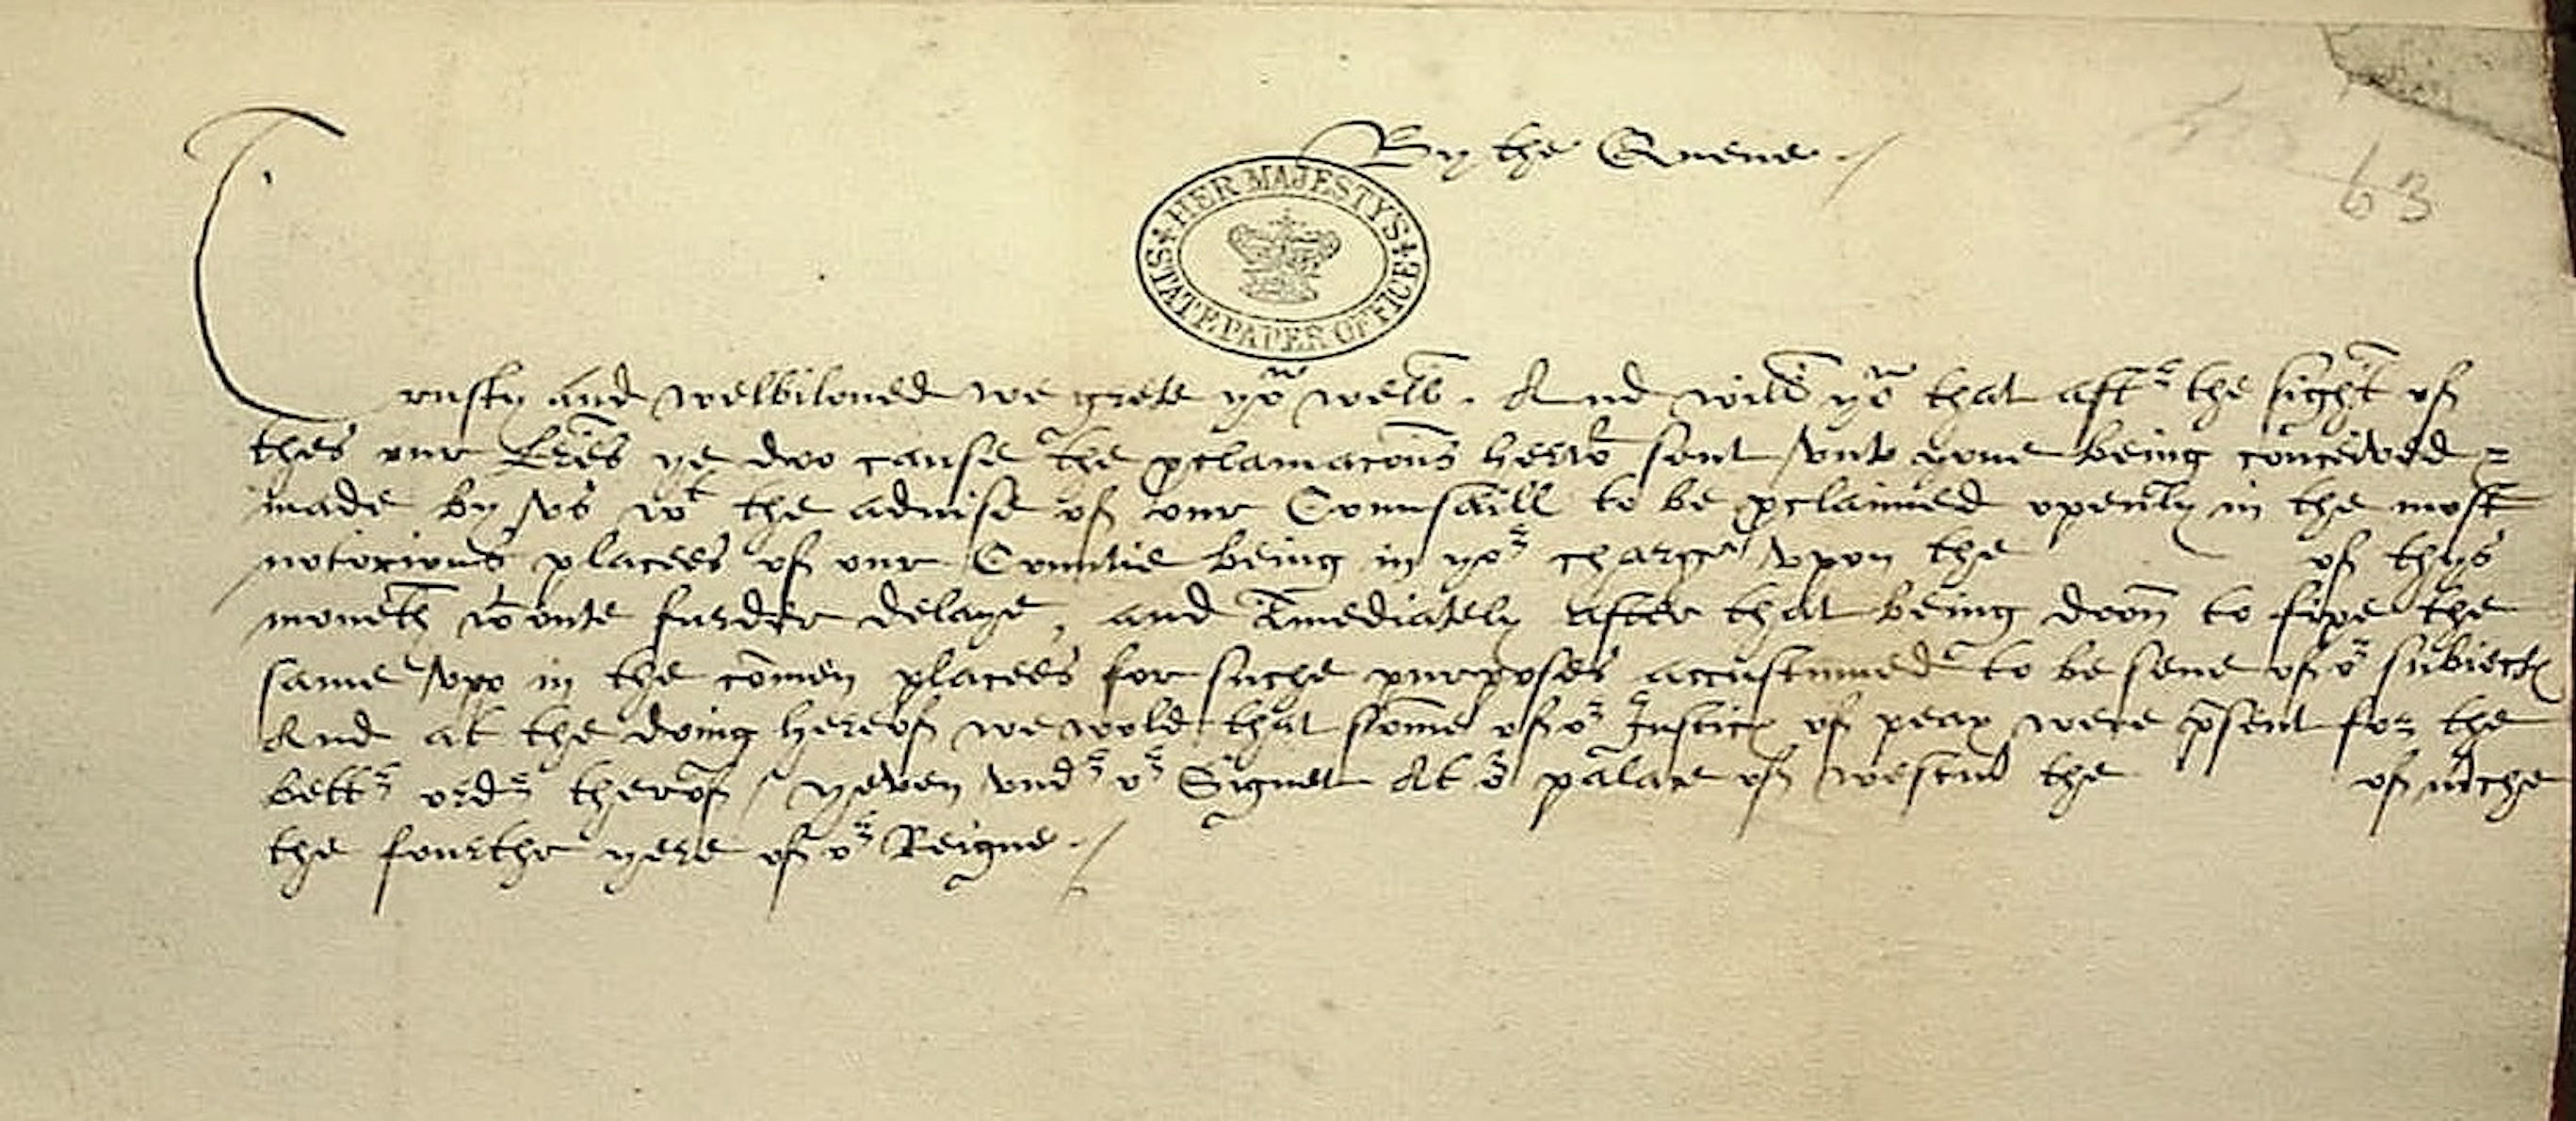 By the Quene
63
HER MAJESTYS
STATE PAPER OFFICE
Trusty and welbiloued we grete yo^u well. And will yo^u that aft^r the sight of
thes our l̃res ye doo cause the p̱clamacons herw^t sent vnto youe being conceived =
made by vs w^t the advise of our Counsaill to be p̱claimed openly in the most
notorious places of our Countie being in yo^r charge vpon the of thys
moneth w^toute furder delaye, and Im̃ediately after that being doon to fixe the
same vpp in the com̃en places for suche purposes accustumed to be sene of o^r subiects
And at the doing hereof we wold that some of o^r Justics of peax were p̱sent for the
bett^r ord^r therof / yeven vnd^r o^r Signet At o^r palace of westm̃ the of m̃che
the fourthe yere of o^r Reigne